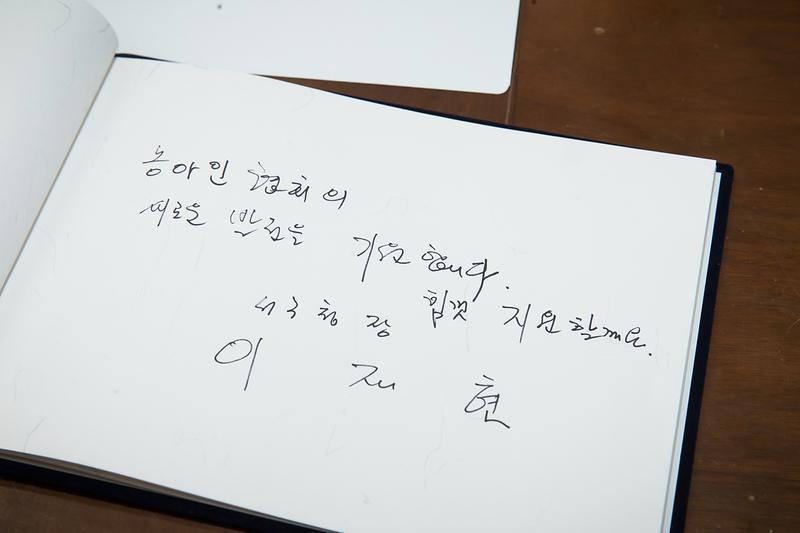 농아인 협회의
새로운 발전을 기원합니다.
힘껏 지원할께요.
서구청장
이 재 현